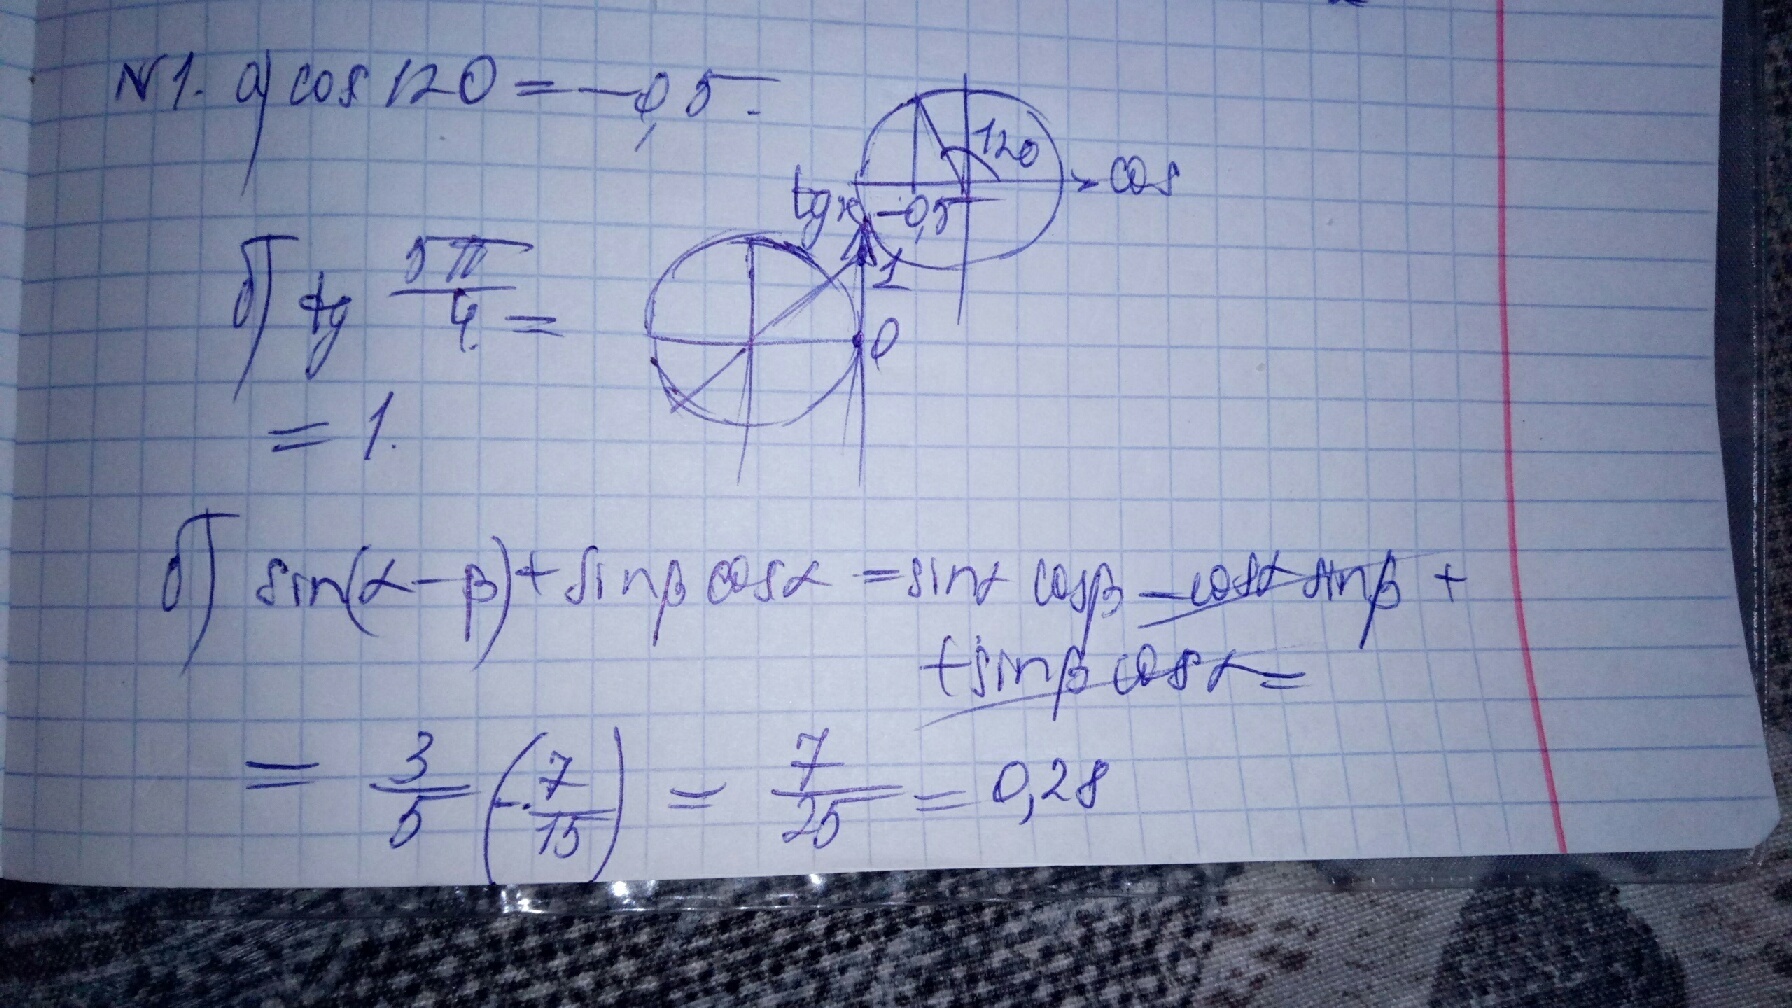 №1. а) cos 120 = -0,5.
120
cos
-0,5
tgx
б) tg 5π/4 =
1
0
= 1.
б) sin(α-β) + sinβ cosα = sinα cosβ - cosα sinβ +
+ sinβ cosα =
= 3/5 (-7/15) = 7/25 = 0,28